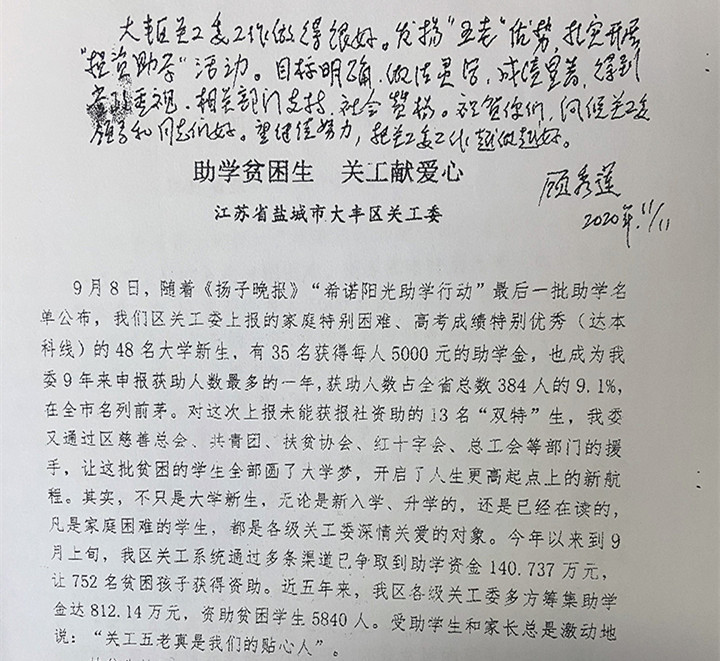 大丰区关工委工作做得很好。发扬“五老”优势，扎实开展
“捐资助学”活动。目标明确，做法灵活，成绩显著，得到
重视，相关部门支持，社会赞扬。祝贺你们，问候关工委
领导和同志们好。望继续努力，把关工委工作越做越好。
顾秀莲
2020年.11/11
助学贫困生 关工献爱心
江苏省盐城市大丰区关工委
9月8日，随着《扬子晚报》“希诺阳光助学行动”最后一批助学名
单公布，我们区关工委上报的家庭特别困难、高考成绩特别优秀（达本
科线）的48名大学新生，有35名获得每人5000元的助学金，也成为我
委9年来申报获助人数最多的一年，获助人数占全省总数384人的9.1%，
在全市名列前茅。对这次上报未能获报社资助的13名“双特”生，我委
又通过区慈善总会、共青团、扶贫协会、红十字会、总工会等部门的援
手，让这批贫困的学生全部圆了大学梦，开启了人生更高起点上的新航
程。其实，不只是大学新生，无论是新入学、升学的，还是已经在读的，
凡是家庭困难的学生，都是各级关工委深情关爱的对象。今年以来到9
月上旬，我区关工系统通过多条渠道已争取到助学资金140.737万元，
让752名贫困孩子获得资助。近五年来，我区各级关工委多方筹集助学
金达812.14万元，资助贫困学生5840人。受助学生和家长总是激动地
说：“关工五老真是我们的贴心人”。